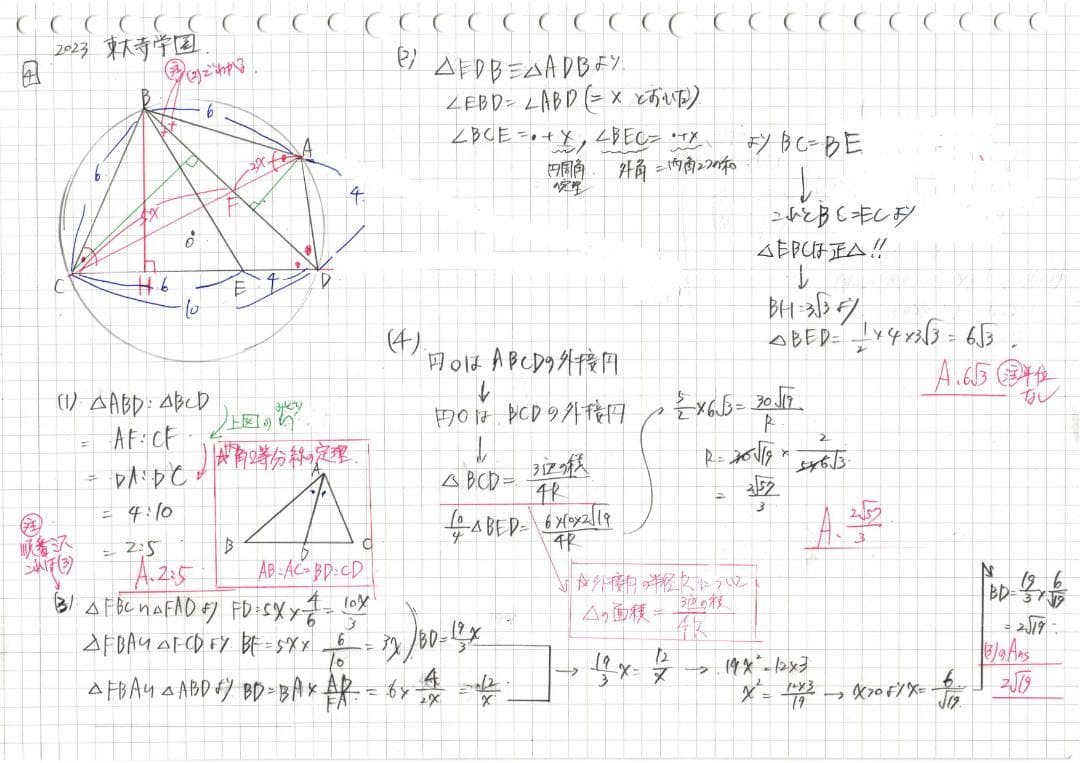 2023 東大寺学園.
4
注 (2)でわかる
B
6
A
6
2x
4
F
5x
O
C
H
6
E
4
D
10
(1) △ABD:△BCD
= AF:CF
= DA:DC
= 4:10
= 2:5
A. 2:5
上図の
☆角2等分線の定理
A
B
D
C
AB:AC=BD:CD
注
順番ミス
これは(3)
(2)
△EDB≡△ADBより
∠EBD=∠ABD(=xとおいた)
∠BCE=・+x, ∠BEC=・+x よりBC=BE
円周角の定理
外角=内角2つの和
↓
これとBC=ECより
△EBCは正△!!
↓
BH=3√3より
△BED=1/2×4×3√3=6√3.
A. 6√3 注 単位なし
(3) △FBC∽△FADより FD=5x×4/6=10x/3
△FBA∽△FCDより BF=5x×6/10=3x
BD=19/3x
△FBA∽△ABDより BD=BA×AD/FA=6×4/2x=12/x
→ 19/3x=12/x → 19x²=12×3
x²=12×3/19 → x>0よりx=6/√19
BD=19/3×6/√19
=2√19.
(3)のAns
2√19
(4)
円OはABCDの外接円
↓
円Oは、BCDの外接円
↓
△BCD=3辺の積/4R
10/4△BED=6×10×2√19/4R
☆外接円の半径Rについて
△の面積=3辺の積/4R
5/2×6√3=30√19/R
R=30√19×2/5×6√3
=2√57/3
A. 2√57/3